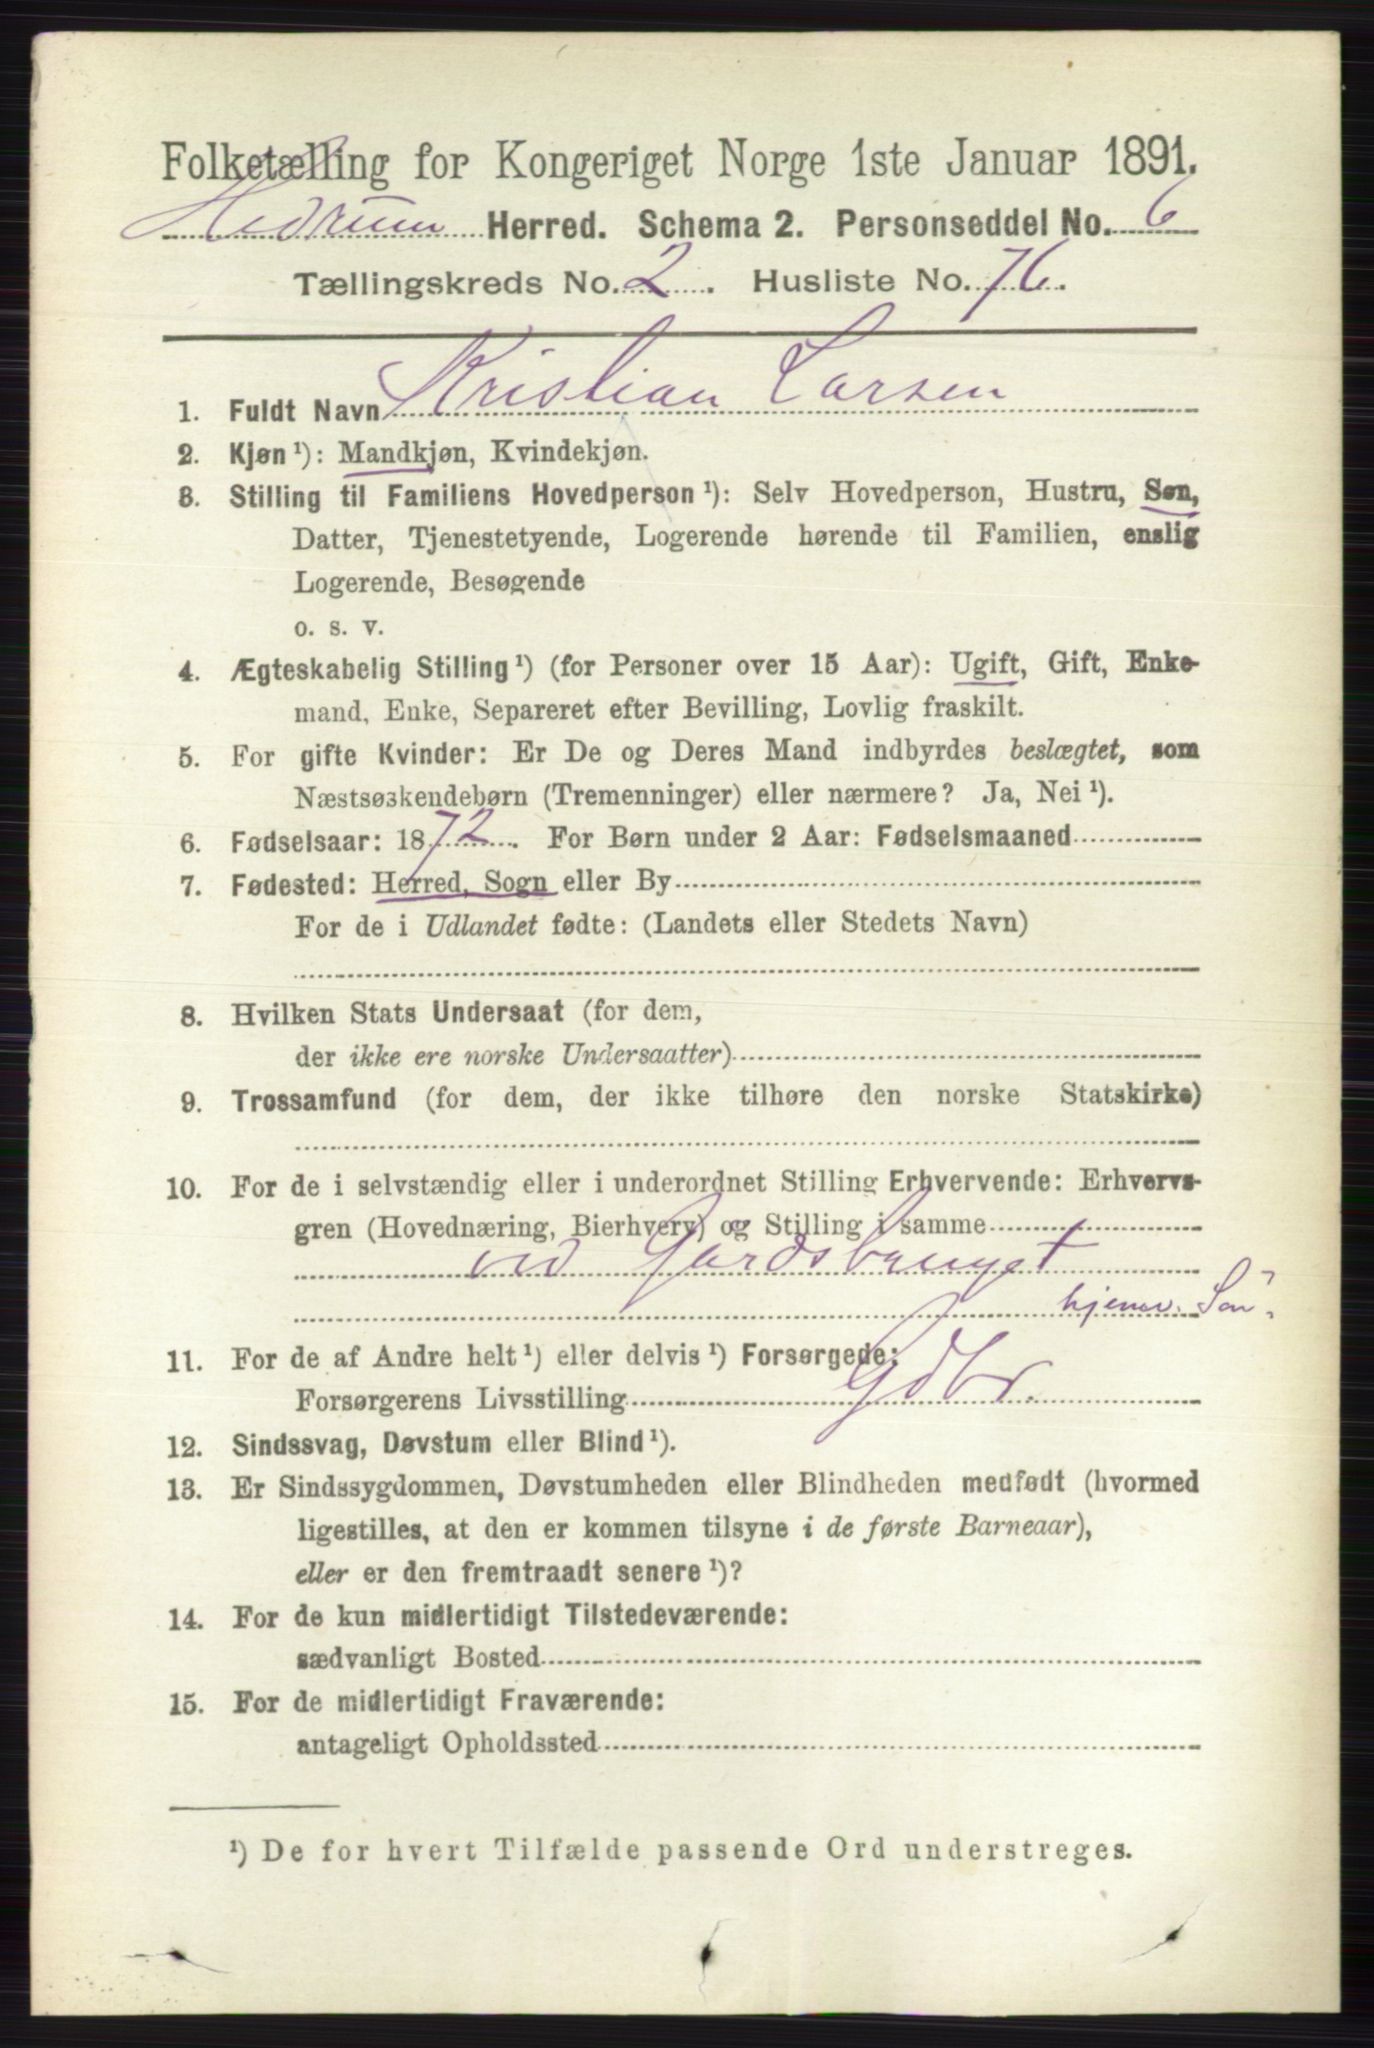 Folketælling for Kongeriget Norge 1ste Januar 1891.
Hedrum Herred. Schema 2. Personseddel No. 6
Tællingskreds No. 2. Husliste No. 76.
1. Fuldt Navn Kristian Larsen
2. Kjøn ¹): Mandkjøn, Kvindekjøn.
3. Stilling til Familiens Hovedperson ¹): Selv Hovedperson, Hustru, Søn,
Datter, Tjenestetyende, Logerende hørende til Familien, enslig
Logerende, Besøgende
o. s. v.
4. Ægteskabelig Stilling ¹) (for Personer over 15 Aar): Ugift, Gift, Enke-
mand, Enke, Separeret efter Bevilling, Lovlig fraskilt.
5. For gifte Kvinder: Er De og Deres Mand indbyrdes beslægtet, som
Næstsøskendebørn (Tremenninger) eller nærmere? Ja, Nei ¹).
6. Fødselsaar: 1872. For Børn under 2 Aar: Fødselsmaaned
7. Fødested: Herred, Sogn eller By
For de i Udlandet fødte: (Landets eller Stedets Navn)
8. Hvilken Stats Undersaat (for dem,
der ikke ere norske Undersaatter)
9. Trossamfund (for dem, der ikke tilhøre den norske Statskirke)
10. For de i selvstændig eller i underordnet Stilling Erhvervende: Erhvervs-
gren (Hovednæring, Bierhverv) og Stilling i samme
ved Gårdsbruget
hjemv. Søn.
11. For de af Andre helt ¹) eller delvis ¹) Forsørgede:
Forsørgerens Livsstilling Gdbr.
12. Sindssvag, Døvstum eller Blind ¹).
13. Er Sindssygdommen, Døvstumheden eller Blindheden medfødt (hvormed
ligestilles, at den er kommen tilsyne i de første Barneaar),
eller er den fremtraadt senere ¹)?
14. For de kun midlertidigt Tilstedeværende:
sædvanligt Bosted
15. For de midlertidigt Fraværende:
antageligt Opholdssted
¹) De for hvert Tilfælde passende Ord understreges.